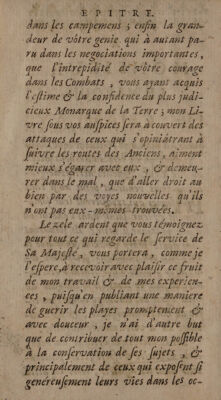 EPITRE.
dans les campemens ; enfin la gran-
deur de vôtre genie qui à autant pa-
ru dans les negociations importantes,
que l'intrepidité de vôtre courage
dans les Combats, vous ayant acquis
l'estime & la confidence du plus judi-
cieux Monarque de la Terre ; mon Li-
vre sous vos auspices sera à couvert des
attaques de ceux qui s'opiniatrant à
suivre les routes des Anciens, aiment
mieux s'égarer avec eux, & demeu-
rer dans le mal, que d'aller droit au
bien par des voyes nouvelles qu'ils
n'ont pas eux-mêmes trouvées.
Le zele ardent que vous témoignez
pour tout ce qui regarde le service de
Sa Majesté, vous portera, comme je
l'espere, à recevoir avec plaisir ce fruit
de mon travail & de mes experien-
ces, puisqu'en publiant une maniere
de guerir les playes promptement &
avec douceur, je n'ai d'autre but
que de contribuer de tout mon possible
à la conservation de ses sujets, &
principalement de ceux qui exposent si
genereusement leurs vies dans les oc-